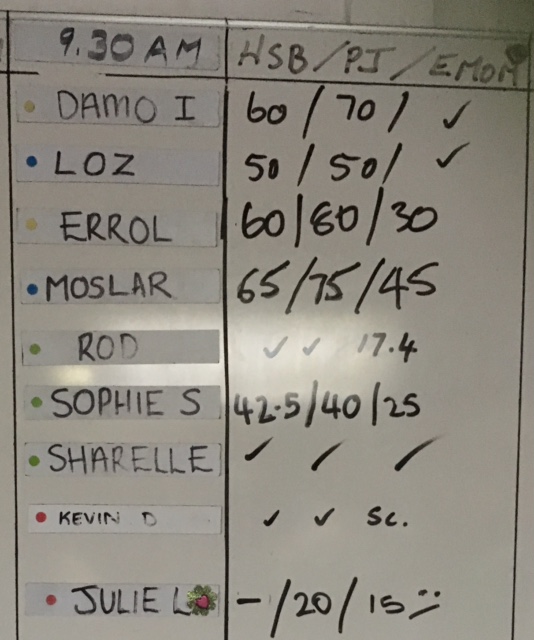 9.30 AM HSB/PJ/EMOM
DAMO I 60/70/ ✓
LOZ 50/50/ ✓
ERROL 60/60/30
MOSLAR 65/75/45
ROD ✓ ✓ 17.4
SOPHIE S 42.5/40/25
SHARELLE ✓ / /
KEVIN D ✓ ✓ Sc.
JULIE L -/20/15